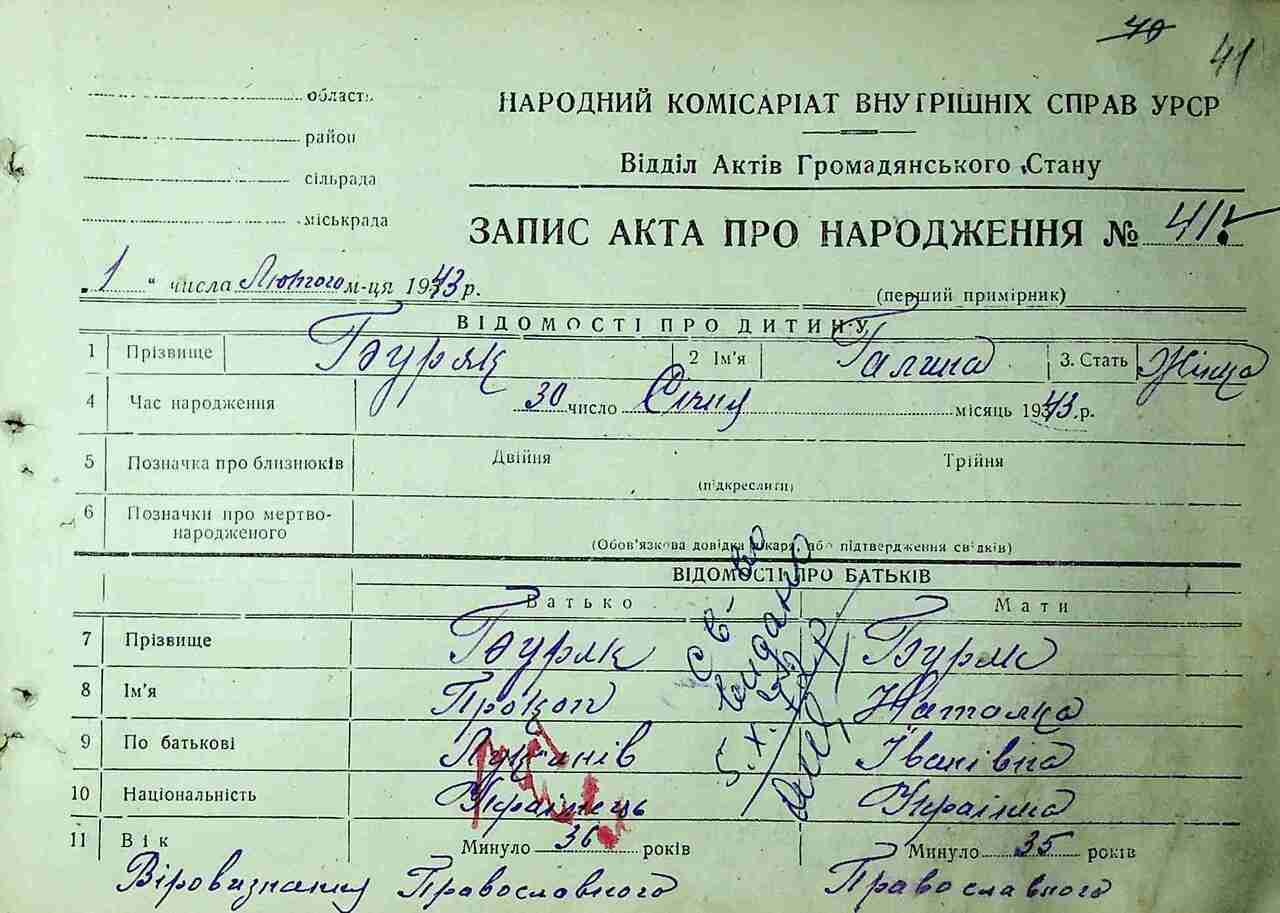 40
41
область
район
сільрада
міськрада
НАРОДНИЙ КОМІСАРІАТ ВНУТРІШНІХ СПРАВ УРСР
Відділ Актів Громадянського Стану
ЗАПИС АКТА ПРО НАРОДЖЕННЯ № 41
1 " числа Лютого м-ця 1943 р.
(перший примірник)
ВІДОМОСТІ ПРО ДИТИНУ
1 Прізвище Буряк 2 Ім'я Галина 3. Стать Жіноча
4 Час народження 30 число Січня місяць 1943 р.
5 Позначка про близнюків Двійня Трійня
(підкреслити)
6 Позначки про мертво-
народженого
(Обов'язкова довідка лікаря, або підтвердження свідків)
ВІДОМОСТІ ПРО БАТЬКІВ
Батько Мати
7 Прізвище Буряк Буряк
8 Ім'я Прокоп Наталка
9 По батькові Іванівна
10 Національність Українець Українка
11 Вік Минуло 36 років Минуло 35 років
Віровизнання Православного Православного
св-во
видано
5.X.